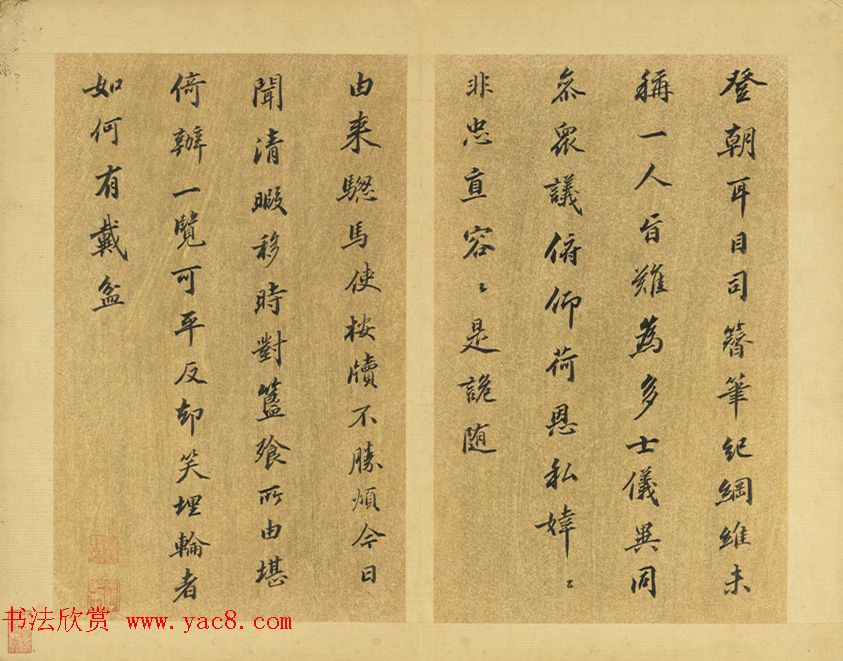 登朝耳目司簪筆紀綱維未
稱一人旨難為多士儀異同
叅眾議俯仰荷恩私婞〻
非忠直容〻是詭随
由来驄馬使桉牘不勝煩今日
聞清暇移時對簋飱所由堪
倚辦一覽可平反却笑埋輪者
如何有戴盆
书法欣赏 www.yac8.com